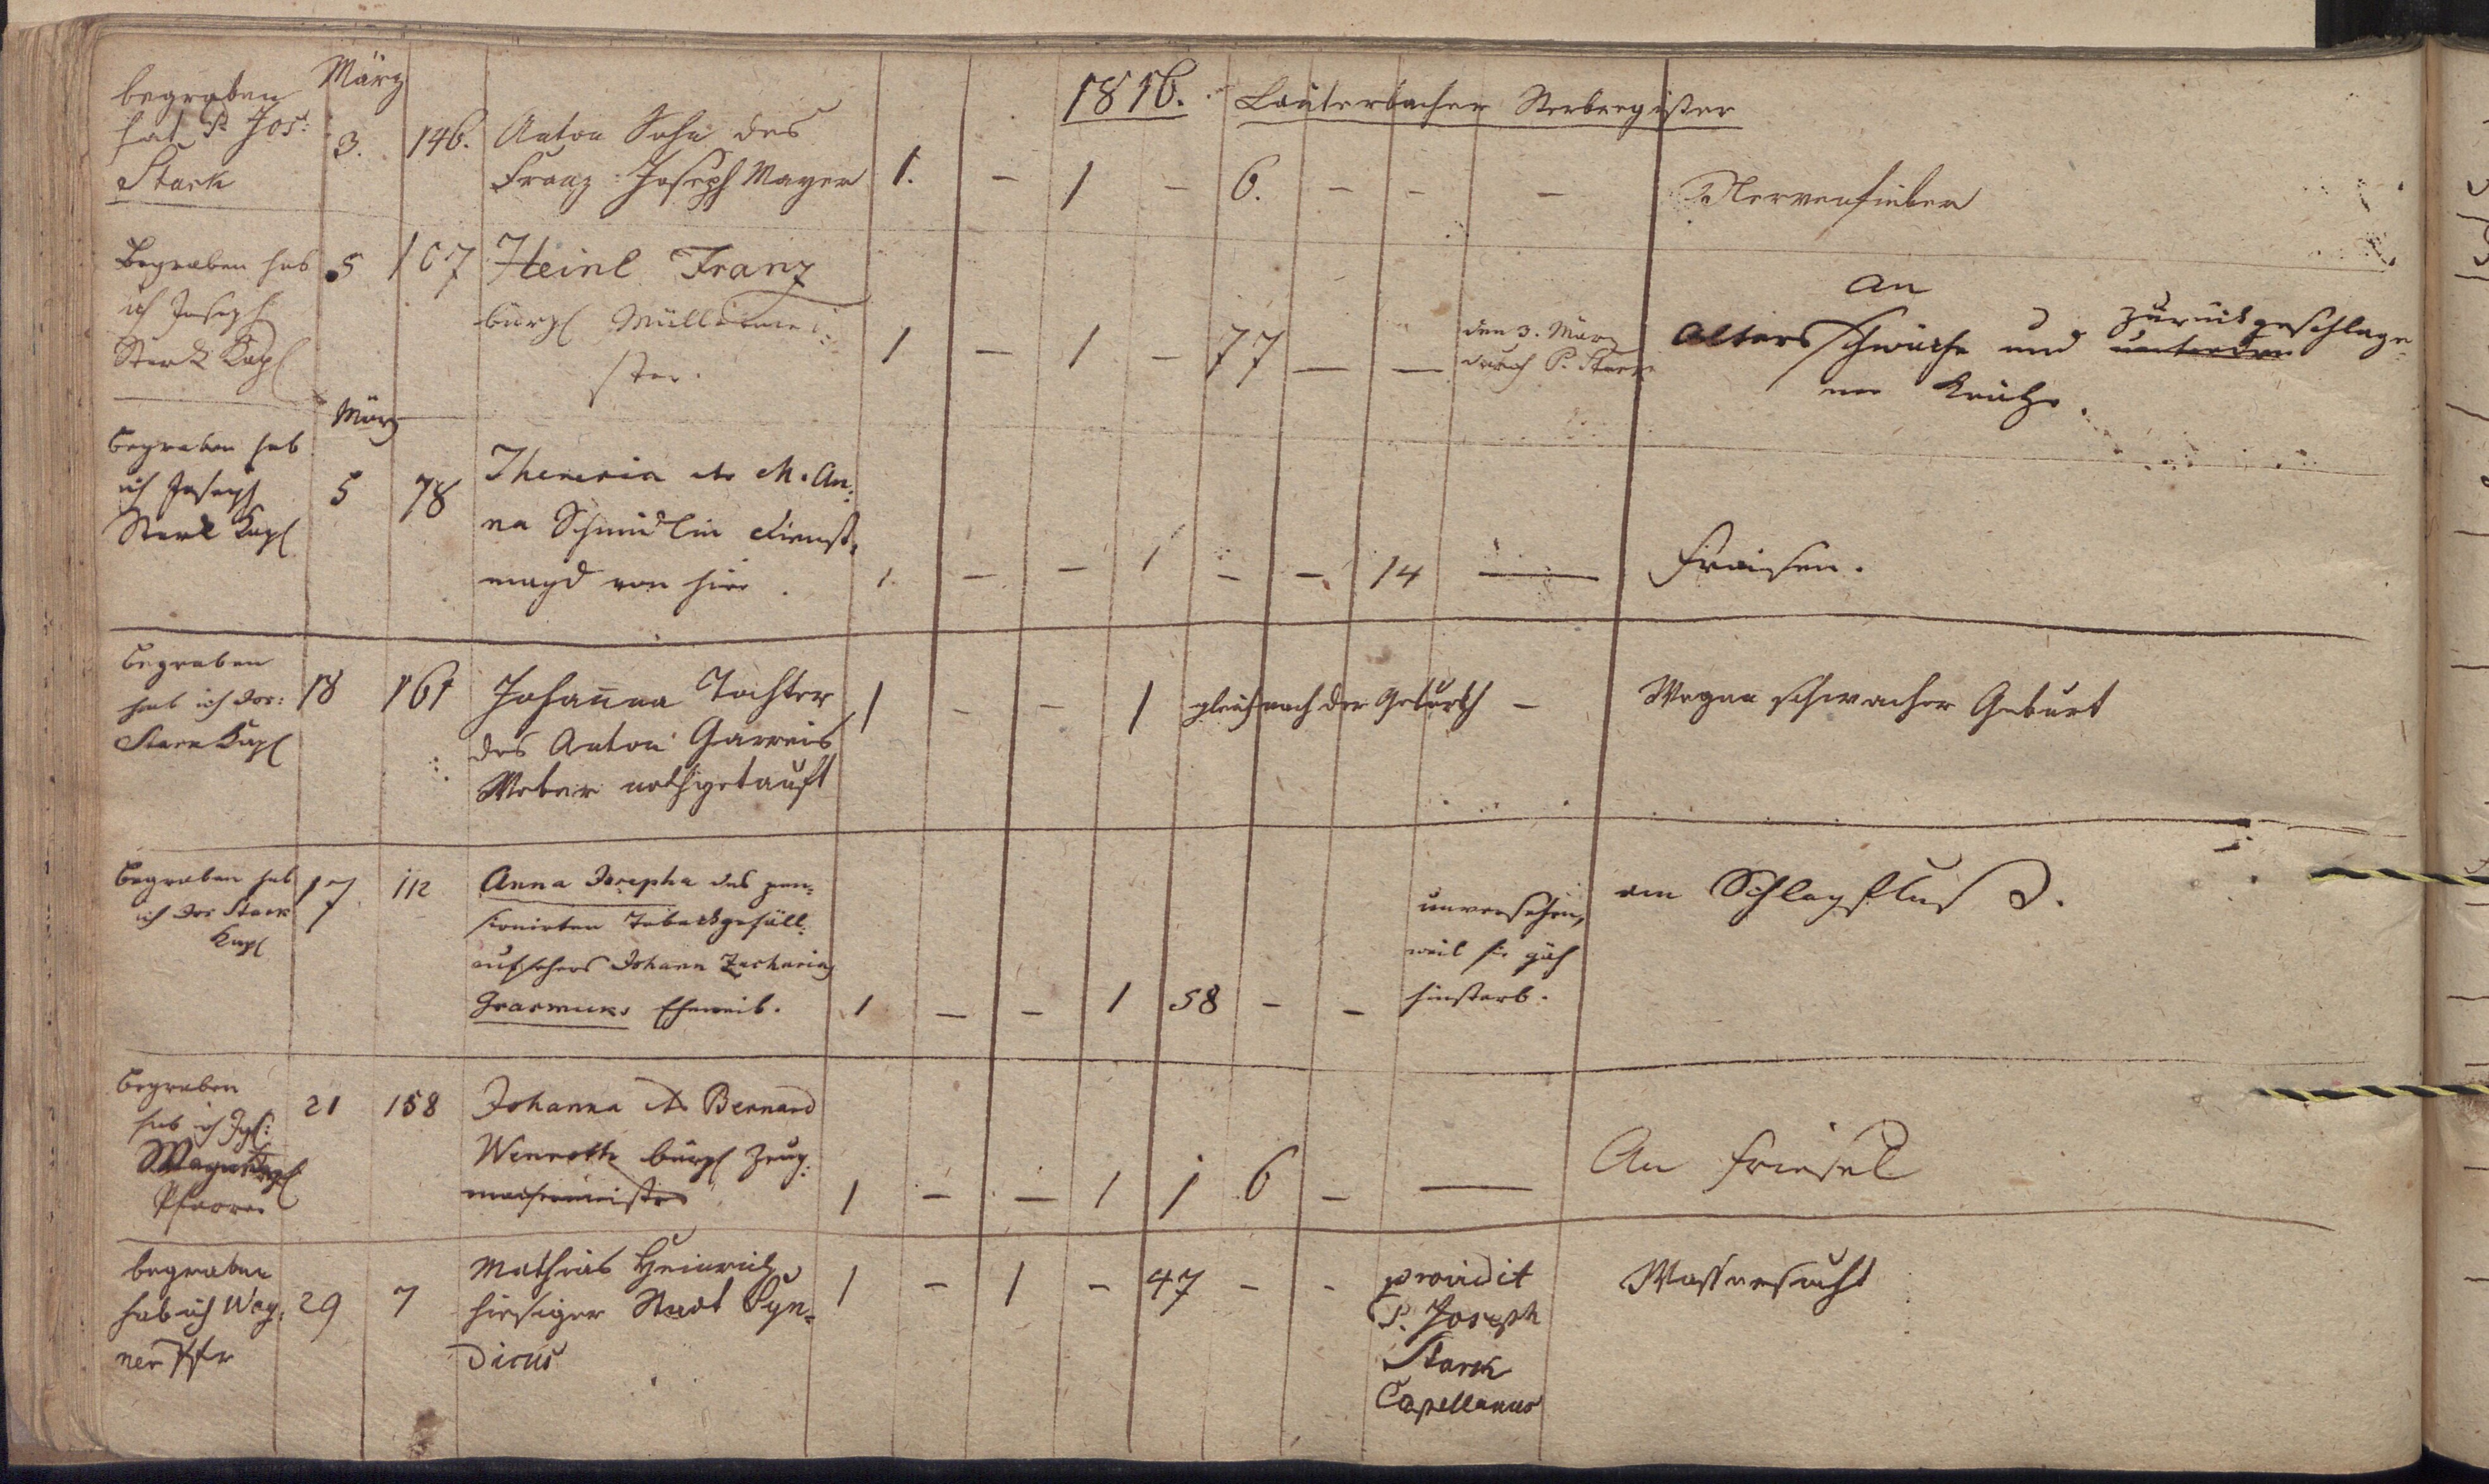 1816. Lauterbacher Sterbregister
März
begraben
hat P. Jos:
Stark
3. 146. Anton Sohn des
Franz Joseph Mayer 1. – 1 – 6. – – – Nervenfieber
Begraben hab
ich Joseph
Stark Kapl
5 107 Heinl Franz
bürgl Müllermei-
ster. 1 – 1 – 77 – – den 3. März
durch P. Stark
An
Altersschwäche und zurückgeschlage-
ner Krätze.
März
Begraben hab
ich Joseph
Stark Kapl
5 78 Theresia der M. An-
na Schmidlin Dienst-
magd von hier. 1. – – 1 – – 14 — Fraisen.
Begraben
hab ich Jos:
Stark Kapl
18 161 Johanna Tochter
des Anton Garreis
Weber nothgetauft
1 – – 1 gleich nach der Geburth – Wegen schwacher Geburt
Begraben hab
ich Jos Stark
Kapl
17 112 Anna Josepha des pen-
sionirten Tabackgefäll-
aufsehers Johann Zacharias
Grasmuks Eheweib. 1 – – 1 58 – –
unversehen,
weil sie gäh
hinstarb.
am Schlagfluß.
Begraben
hab ich
Wagner
Pfarrer
21 158 Johanna des Bernard
Wenroth bürgl Zeug-
machermeisters 1 – – 1 1 6 – — An Friesel
begraben
hab ich Wag-
ner Pfr
29 7 Mathias Heinrich
hiesiger Stadt Syn-
dicus 1 – 1 – 47 – –
providit
P. Joseph
Stark
Capellanus
Wassersucht